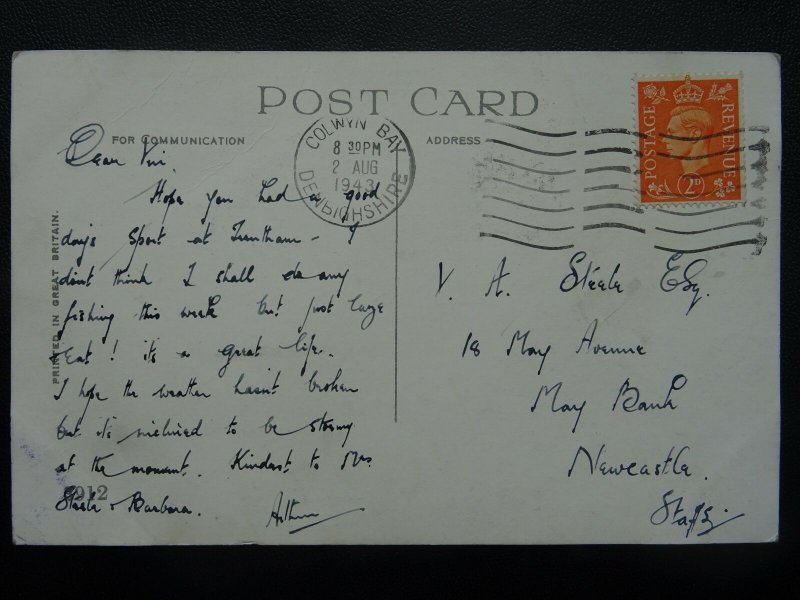 POST CARD
FOR COMMUNICATION
ADDRESS
COLWYN BAY
8 30PM
2 AUG
1943
DENBIGHSHIRE
POSTAGE
REVENUE
2D
PRINTED IN GREAT BRITAIN.
Dear Vin.
Hope you had a good
days sport at Trentham - I
don't think I shall do any
fishing this week but just laze
Eat! it's a great life.
I hope the weather hasn't broken
but it's inclined to be stormy
at the moment. Kindest to Mrs.
Steele & Barbara. Arthur
V. A. Steele Esq.
18 May Avenue
May Bank
Newcastle.
Staffs.